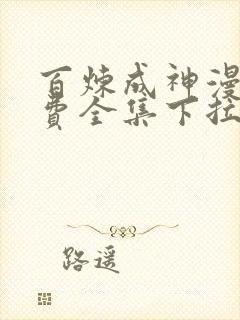 百炼成神漫
费全集下拉
路遥